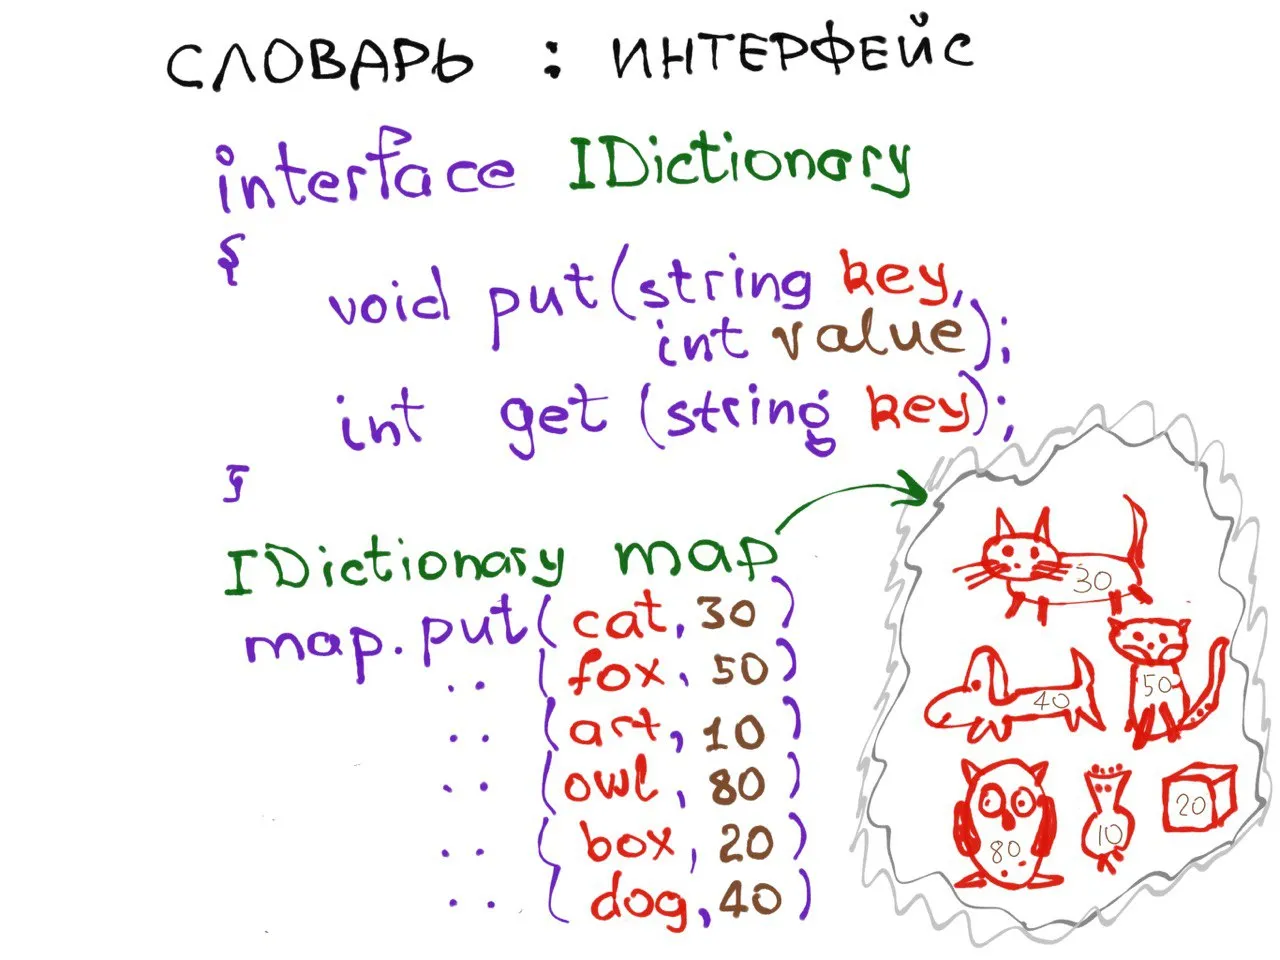 СЛОВАРЬ : ИНТЕРФЕЙС
interface IDictionary
{
void put(string key,
int value);
int get (string key);
}
IDictionary map
map.put(cat, 30)
.. (fox, 50)
.. (art, 10)
.. (owl, 80)
.. (box, 20)
.. (dog, 40)
30
40
50
80
10
20